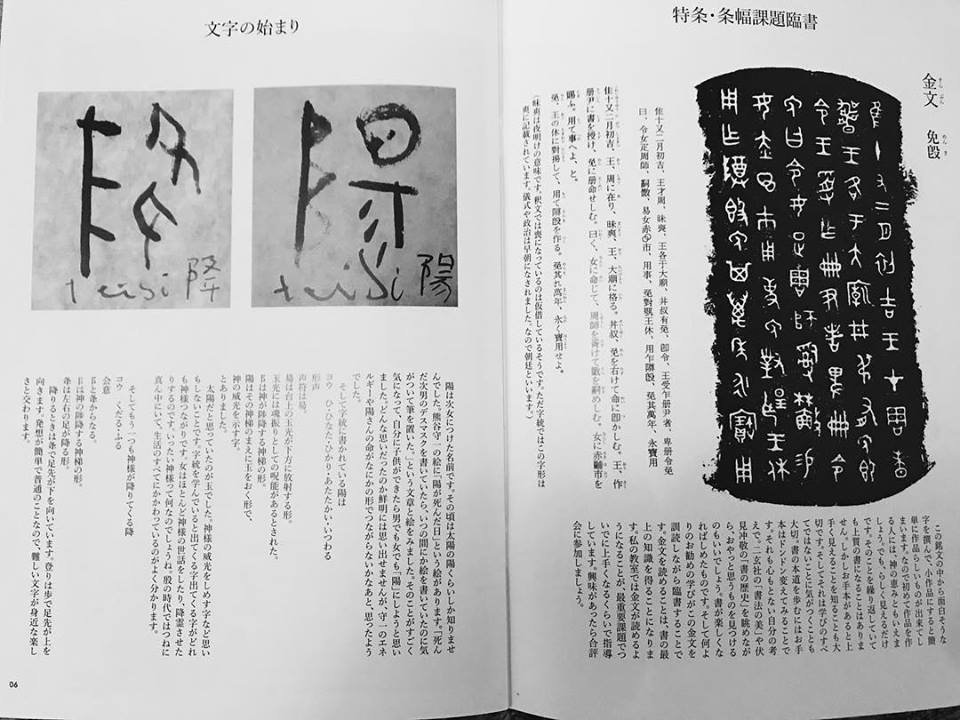 特条・条幅課題臨書
金文 免𣪘
隹十又二月初吉、王才周、昧喪、王各于大廟、井叔有免、卽令、王受乍册尹者、卑册令免
曰、令女疋周師、易女赤市、用事、免對王休、用乍𣪘、免其萬年、永寶用
隹十又二月初吉、王、周に在り、昧爽、王、大廟に格る。井叔、免を右けて命に卽かしむ。王、作
册尹に書を授け、免に册命せしむ。曰く、女に命じて、周師を胥けて を嗣めしむ。女に赤 市を
賜ふ。用て事へよ、と。
免、王の休に對揚して、用て 𣪘を作る。免其れ萬年、永く寶用せよ。
(昧爽は夜明けの意味です。釈文では喪になっているのは仮借しているそうです。ただ字統ではこの字形は
爽に記載されています。儀式や政治は早朝になされました。なので朝廷といいます。)
この銘文の中から面白そうな
字を撰んで、小作品にすると簡
単に作品らしいものが出来てし
まいます。なので初めて作品を作
る人には、神の恵みともいえま
しょう。らしく見えるんだけ
ど、そのことを繰り返していて
も上質の書になることはありま
せん。しかしお手本があると上
手く見えることを知ることも大
切です。そしてそれは学びのすべ
てではないことに気がつくことも
大切。書の本道を歩むにはお手
本はトンドン変えてみることで
す。それもなるべく自分の考
えで。二玄社の「書法の美」や伏
見冲敬の「書の歴史」を眺めなが
ら、おやっと思うものを見つける
のもいいでしょう。書が楽しくな
ればしめたものです。そして何よ
りのお勧めの学びがこの金文を
訓読しながら臨書することで
す。金文を読めることは、書の最
上の知識を得ることになりま
す。私の教室では金文が読めるよ
うになることが、最重要課題でつ
いでに上手くなるくらいで指導
しています。興味があったら合評
会に参加しましょう。
文字の始まり
teisi 陽
teisi 降
陽は次女につけた名前です。その頃は太陽の陽くらいしか知りませ
んでした。熊谷守一の絵に「陽が死んだ日」という絵があります。「死ん
だ次男のデスマスクを書いていたら、いつの間にか絵を書いていたのに気
がついて筆を置いた。」という文章と絵をみました。そのことがすごく
気になって、自分に子供ができたら男でも女でも「陽」にしようと思い
ました。どんな思いだったのか鮮明には思い出せませんが、守一のエネ
ルギーや陽さんの命がなにかの形でつながらないかなあと、思ったよう
でした。
そして字統に書かれている陽は
ヨウ ひ・ひなた・ひかり・あたたかい・いつわる
形声
声符は昜。
昜は台上の玉光が下方に放射する形。
玉光には魂振りとしての呪能があるとされた。
阝は神が陟降する神梯の形。
陽はその神梯のまえに玉をおく形で、
神の威光を示す字。
とありました。
太陽だと思っていたのが玉でした。神様の威光をしめす字など思い
もしないことです。字統を学んでいると出てくる字出てくる字がどれ
も神様つながりです。女はほとんど神様の世話をしたり、降霊させた
りするのです。いったい神様って何なのでしょうね。殷の時代ではつねに
真ん中にいて、生活のすべてにかかわっているのがよく分かります。
そしてもう一つも神様が降りてくる降
コウ くだる・ふる
会意
阝と夅からなる。
阝は神の陟降する神梯の形。
夅は左右の足が降る形。
降りるときは夅で足先が下を向いています。登りは歩で足先が上を
向きます。発想が簡単で普通のことなので、難しい文字が身近な楽し
きと交わります。
06